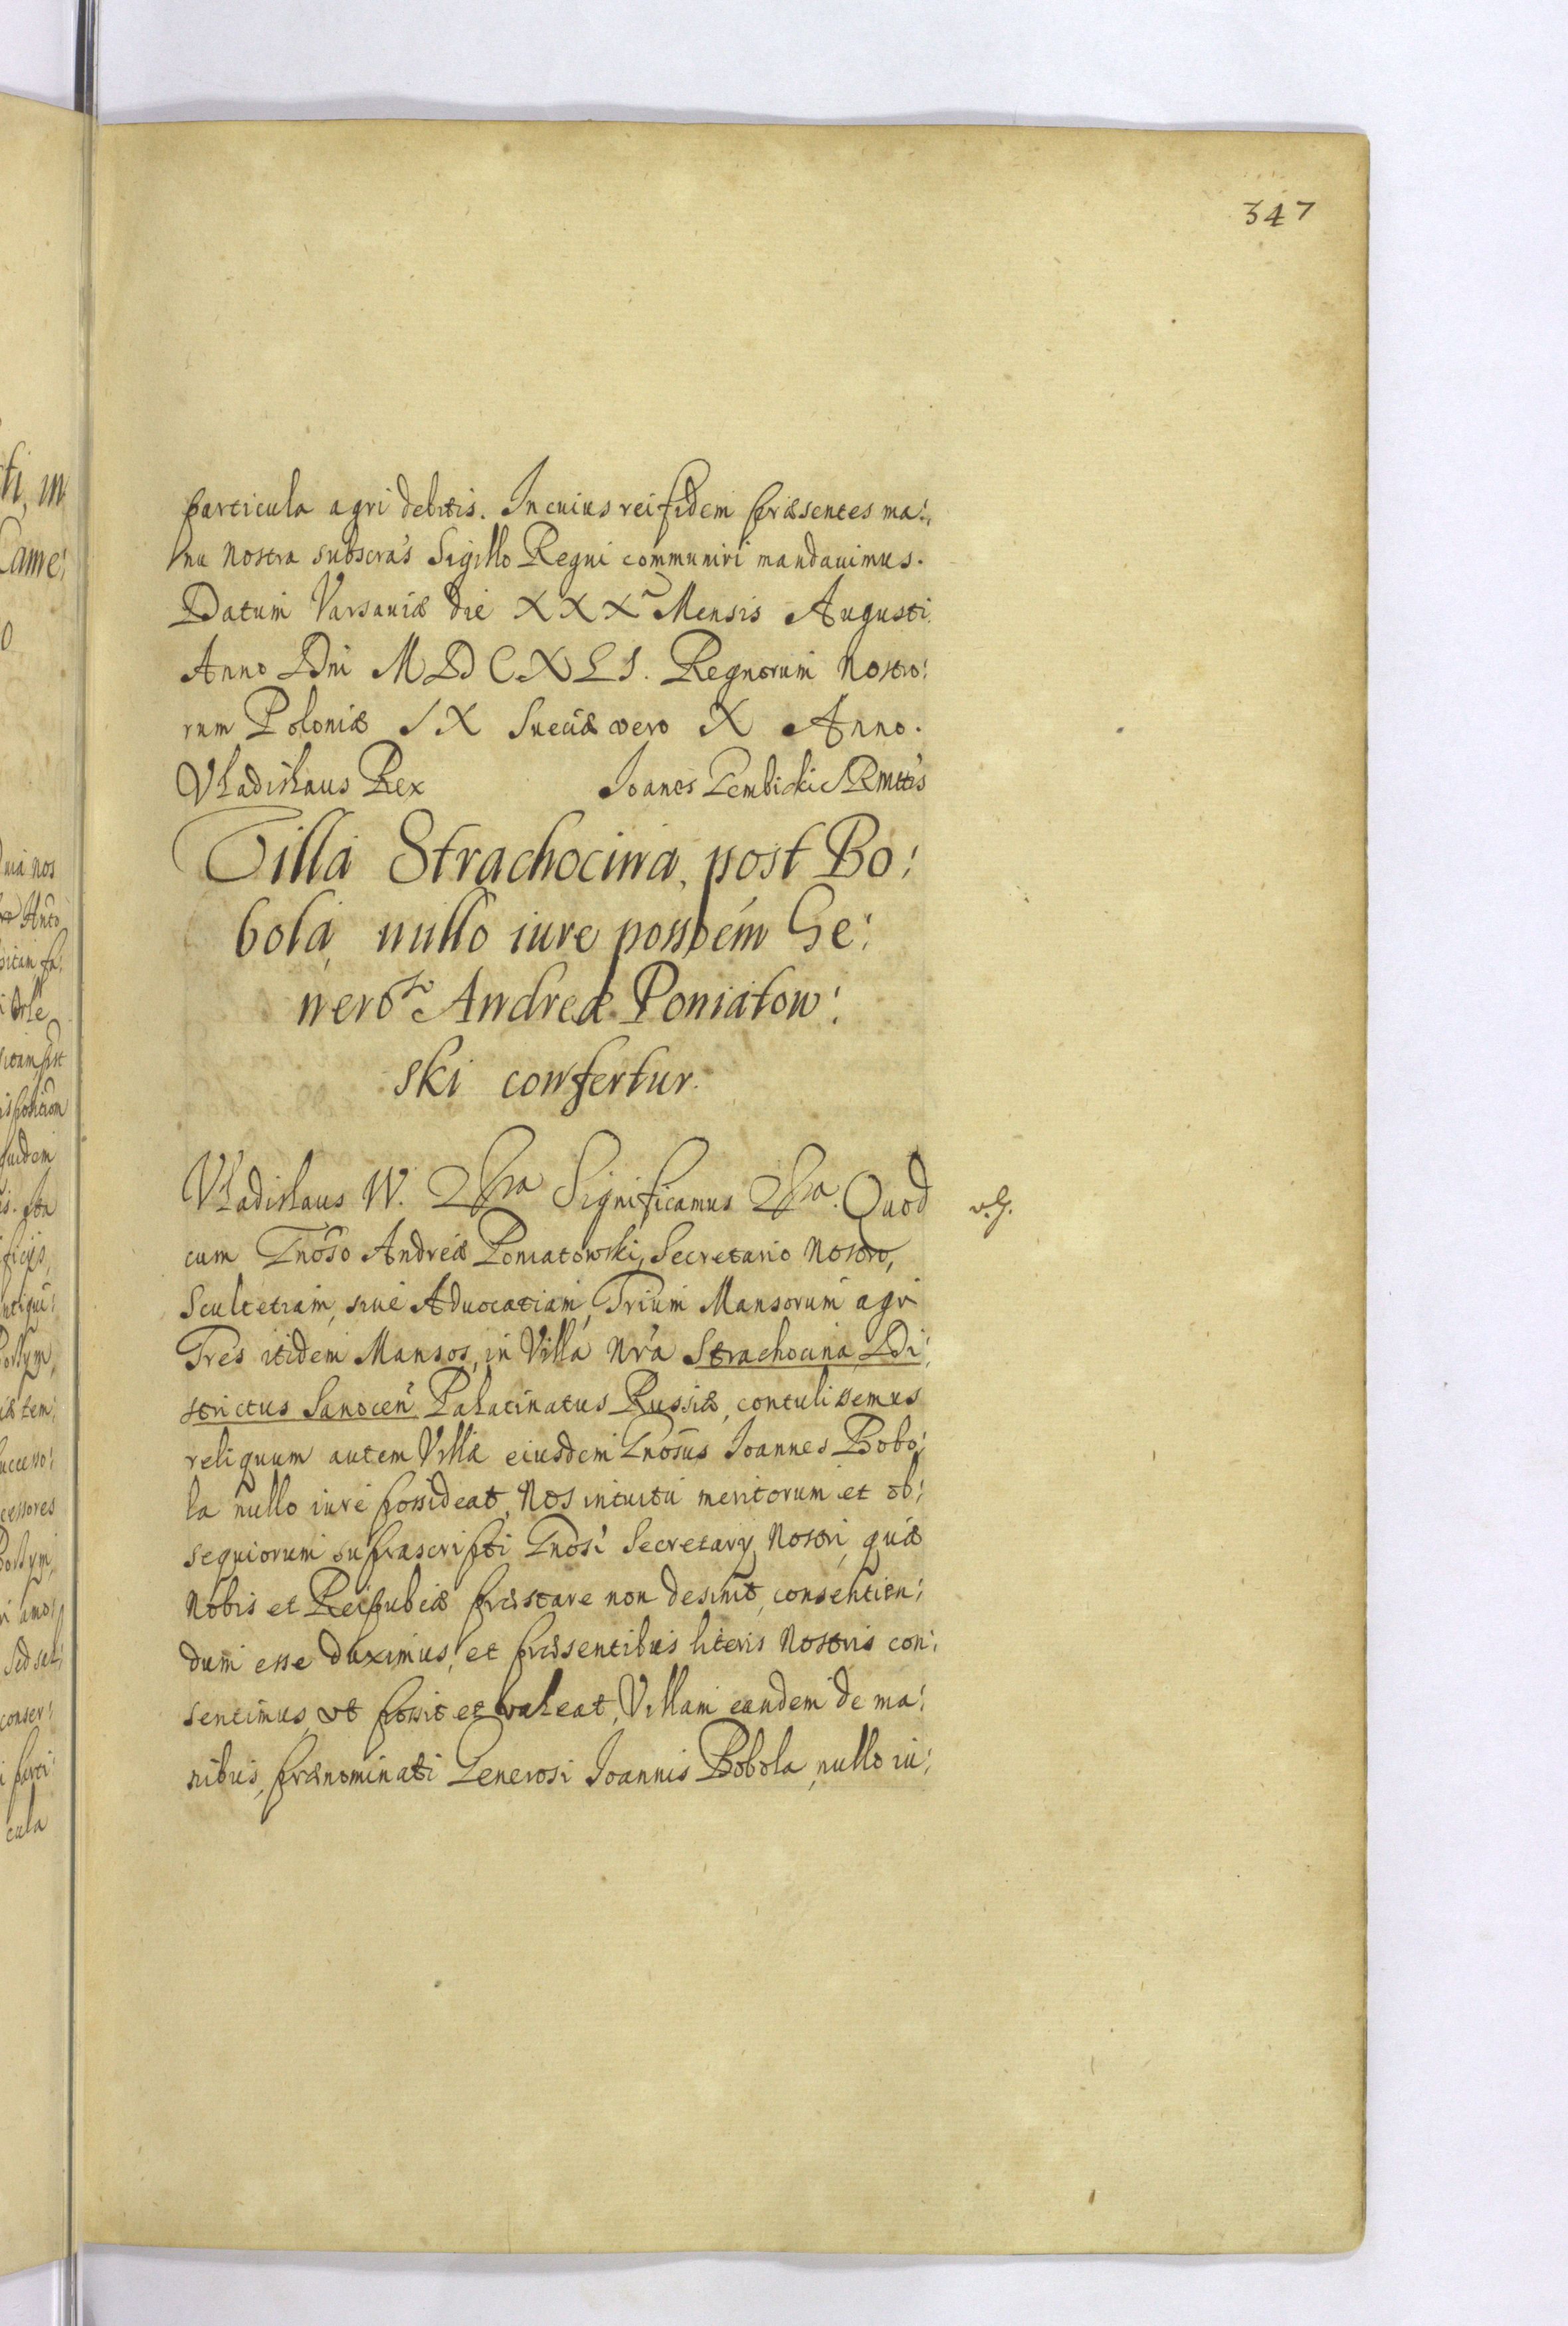 347
particula agri debitis. In cuius rei fidem præsentes ma:
nu nostra subscra's Sigillo Regni communiri mandauimus.
Datum Varsauiæ die XXX Mensis Augusti
Anno Dni MDCXLI. Regnorum Nostro:
rum Poloniæ IX Sueciæ vero X Anno.
Vladislaus Rex Joanes Gembicki RMttis
Villa Strachocina, post Bo:
bola, nullo iure possdem Ge:
neroso Andreæ Poniatow:
ski confertur.
Vladislaus IV. Significamus Quod
cum Gnoso Andreæ Poniatowski, Secretario Nostro,
Scultetiam, siue Aduocatiam, Trium Mansorum agri
Tres itidem Mansos, in Villa Nra Strachocina, Di:
strictus Sanocen Palatinatus Russiæ, contulissemus
reliquum autem Villæ eiusdem Gnosus Joannes Bobo:
la nullo iure possideat, Nos intuitu meritorum et ob:
sequiorum suprascripti Gnosi Secretarij Nostri, quæ
Nobis et Reipubcæ præstare non desinit, consentien:
dum esse duximus, et præsentibus literis Nostris con:
sentimus, vt possit et valeat, Villam eandem de ma:
nibus, prænominati Generosi Joannis Bobola, nullo iu: